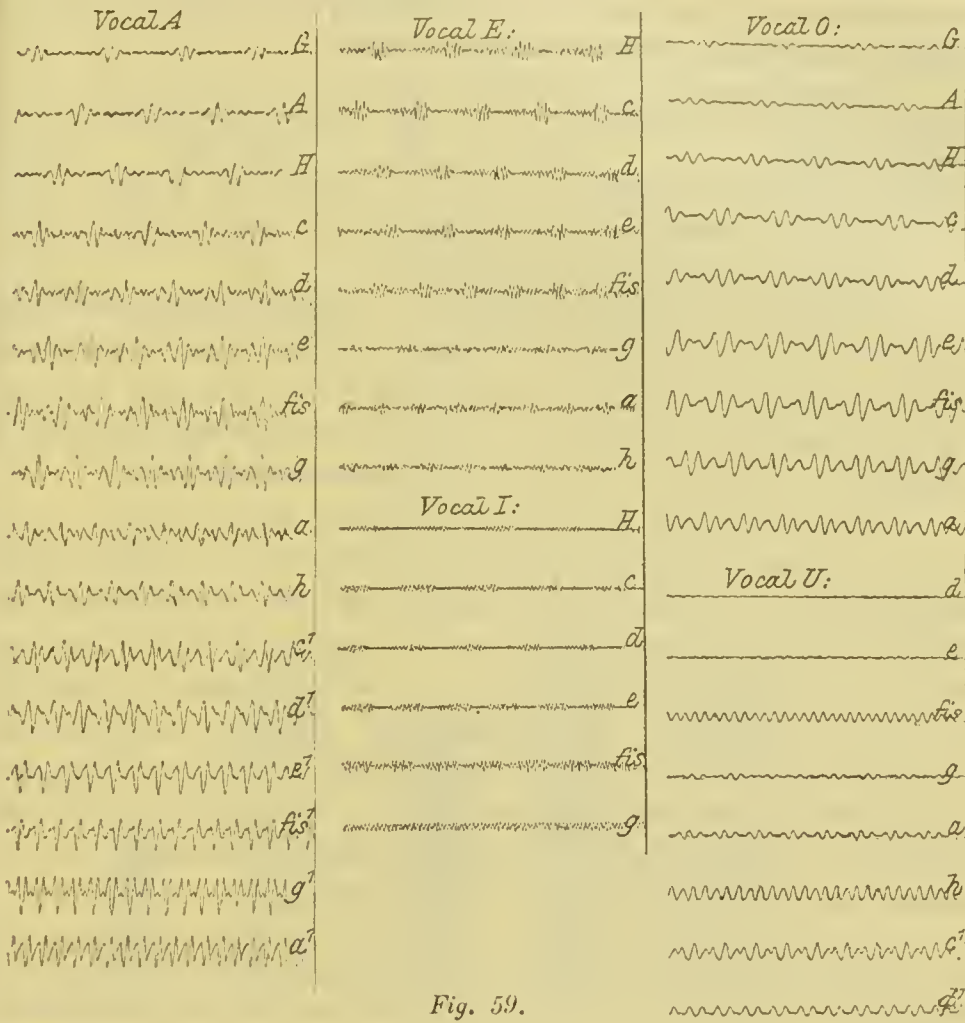 Vocal A
G
A
H
c
d
e
fis
g
a
h
c¹
d¹
e¹
fis¹
g¹
a¹
Vocal E:
H
c
d
e
fis
g
a
h
Vocal I:
H
c
d
e
fis
g
Vocal O:
G
A
H
c
d
e
fis
g
a
Vocal U:
d
e
fis
g
a
h
c¹
d¹
Fig. 59.